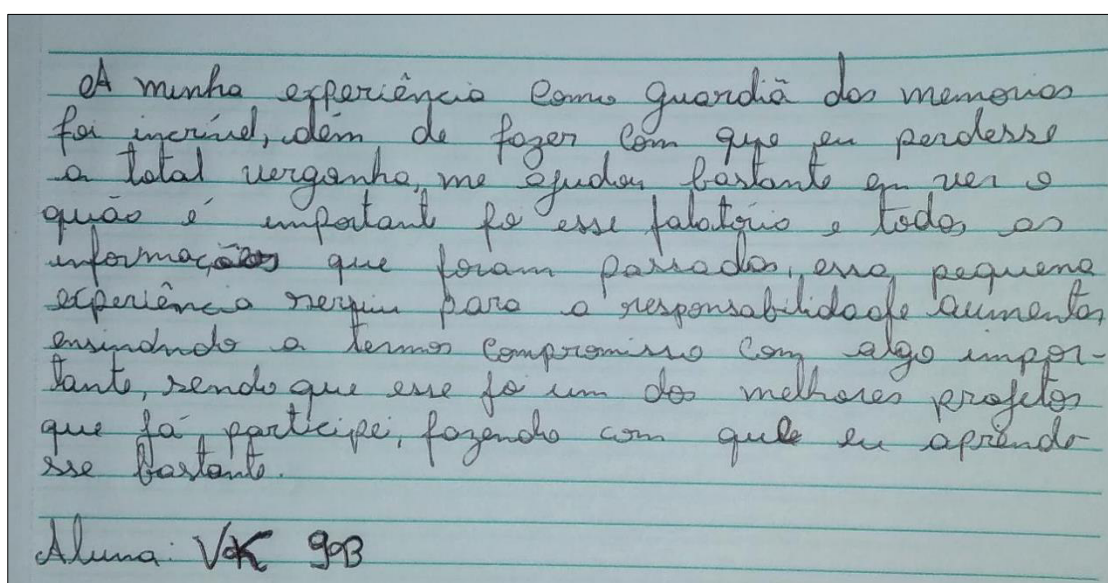 A minha experiência como guardiã das memorias
foi incrível, além de fazer com que eu perdesse
a total vergonha, me ajudou bastante em ver o
quão é important foi esse falatório e todas as
informações que foram passadas, essa pequena
experiência serviu para a responsabilidade aumentar,
ensinando a termos compromisso com algo impor-
tante, sendo que esse foi um dos melhores projetos
que já participei, fazendo com que eu aprende
sse bastante.
Aluna: VK 9ºB